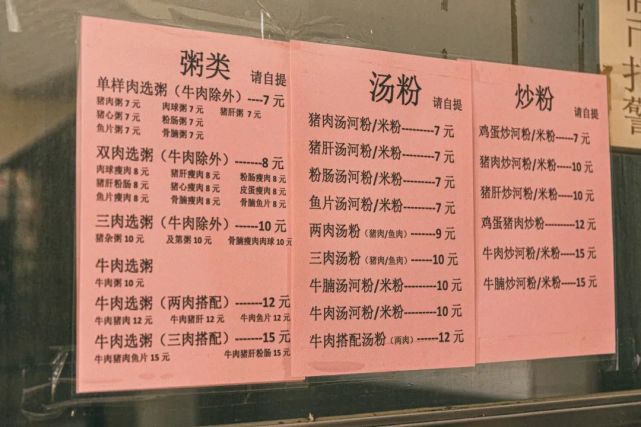 粥类 请自提
单样肉选粥（牛肉除外）----7 元
猪肉粥 7 元 肉球粥 7 元 猪肝粥 7 元
猪心粥 7 元 粉肠粥 7 元
鱼片粥 7 元 骨腩粥 7 元
双肉选粥（牛肉除外）-----8 元
肉球瘦肉 8 元 猪肝瘦肉 8 元 粉肠瘦肉 8 元
猪肝粉肠 8 元 猪心瘦肉 8 元 皮蛋瘦肉 8 元
鱼片瘦肉 8 元 骨腩瘦肉 8 元 骨腩鱼片 8 元
三肉选粥（牛肉除外）-----10 元
猪杂粥 10 元 及第粥 10 元 骨腩瘦肉肉球 10 元
牛肉选粥
牛肉粥 10 元
牛肉选粥（两肉搭配）-----12 元
牛肉猪肉 12 元 牛肉猪肝 12 元 牛肉鱼片 12 元
牛肉选粥（三肉搭配）-----15 元
牛肉猪肉鱼片 15 元 牛肉猪肝粉肠 15 元
汤粉 请自提
猪肉汤河粉/米粉---------7 元
猪肝汤河粉/米粉---------7 元
粉肠汤河粉/米粉---------7 元
鱼片汤河粉/米粉---------7 元
两肉汤粉（猪肉/鱼肉）-------9 元
三肉汤粉（猪肉/鱼肉）------10 元
牛腩汤河粉/米粉--------10 元
牛肉汤河粉/米粉--------10 元
牛肉搭配汤粉（两肉）-------12 元
炒粉 请自提
鸡蛋炒河粉/米粉-----7 元
猪肉炒河粉/米粉----10 元
猪肝炒河粉/米粉----10 元
鸡蛋猪肉炒粉--------12 元
牛肉炒河粉/米粉----15 元
牛腩炒河粉/米粉----15 元